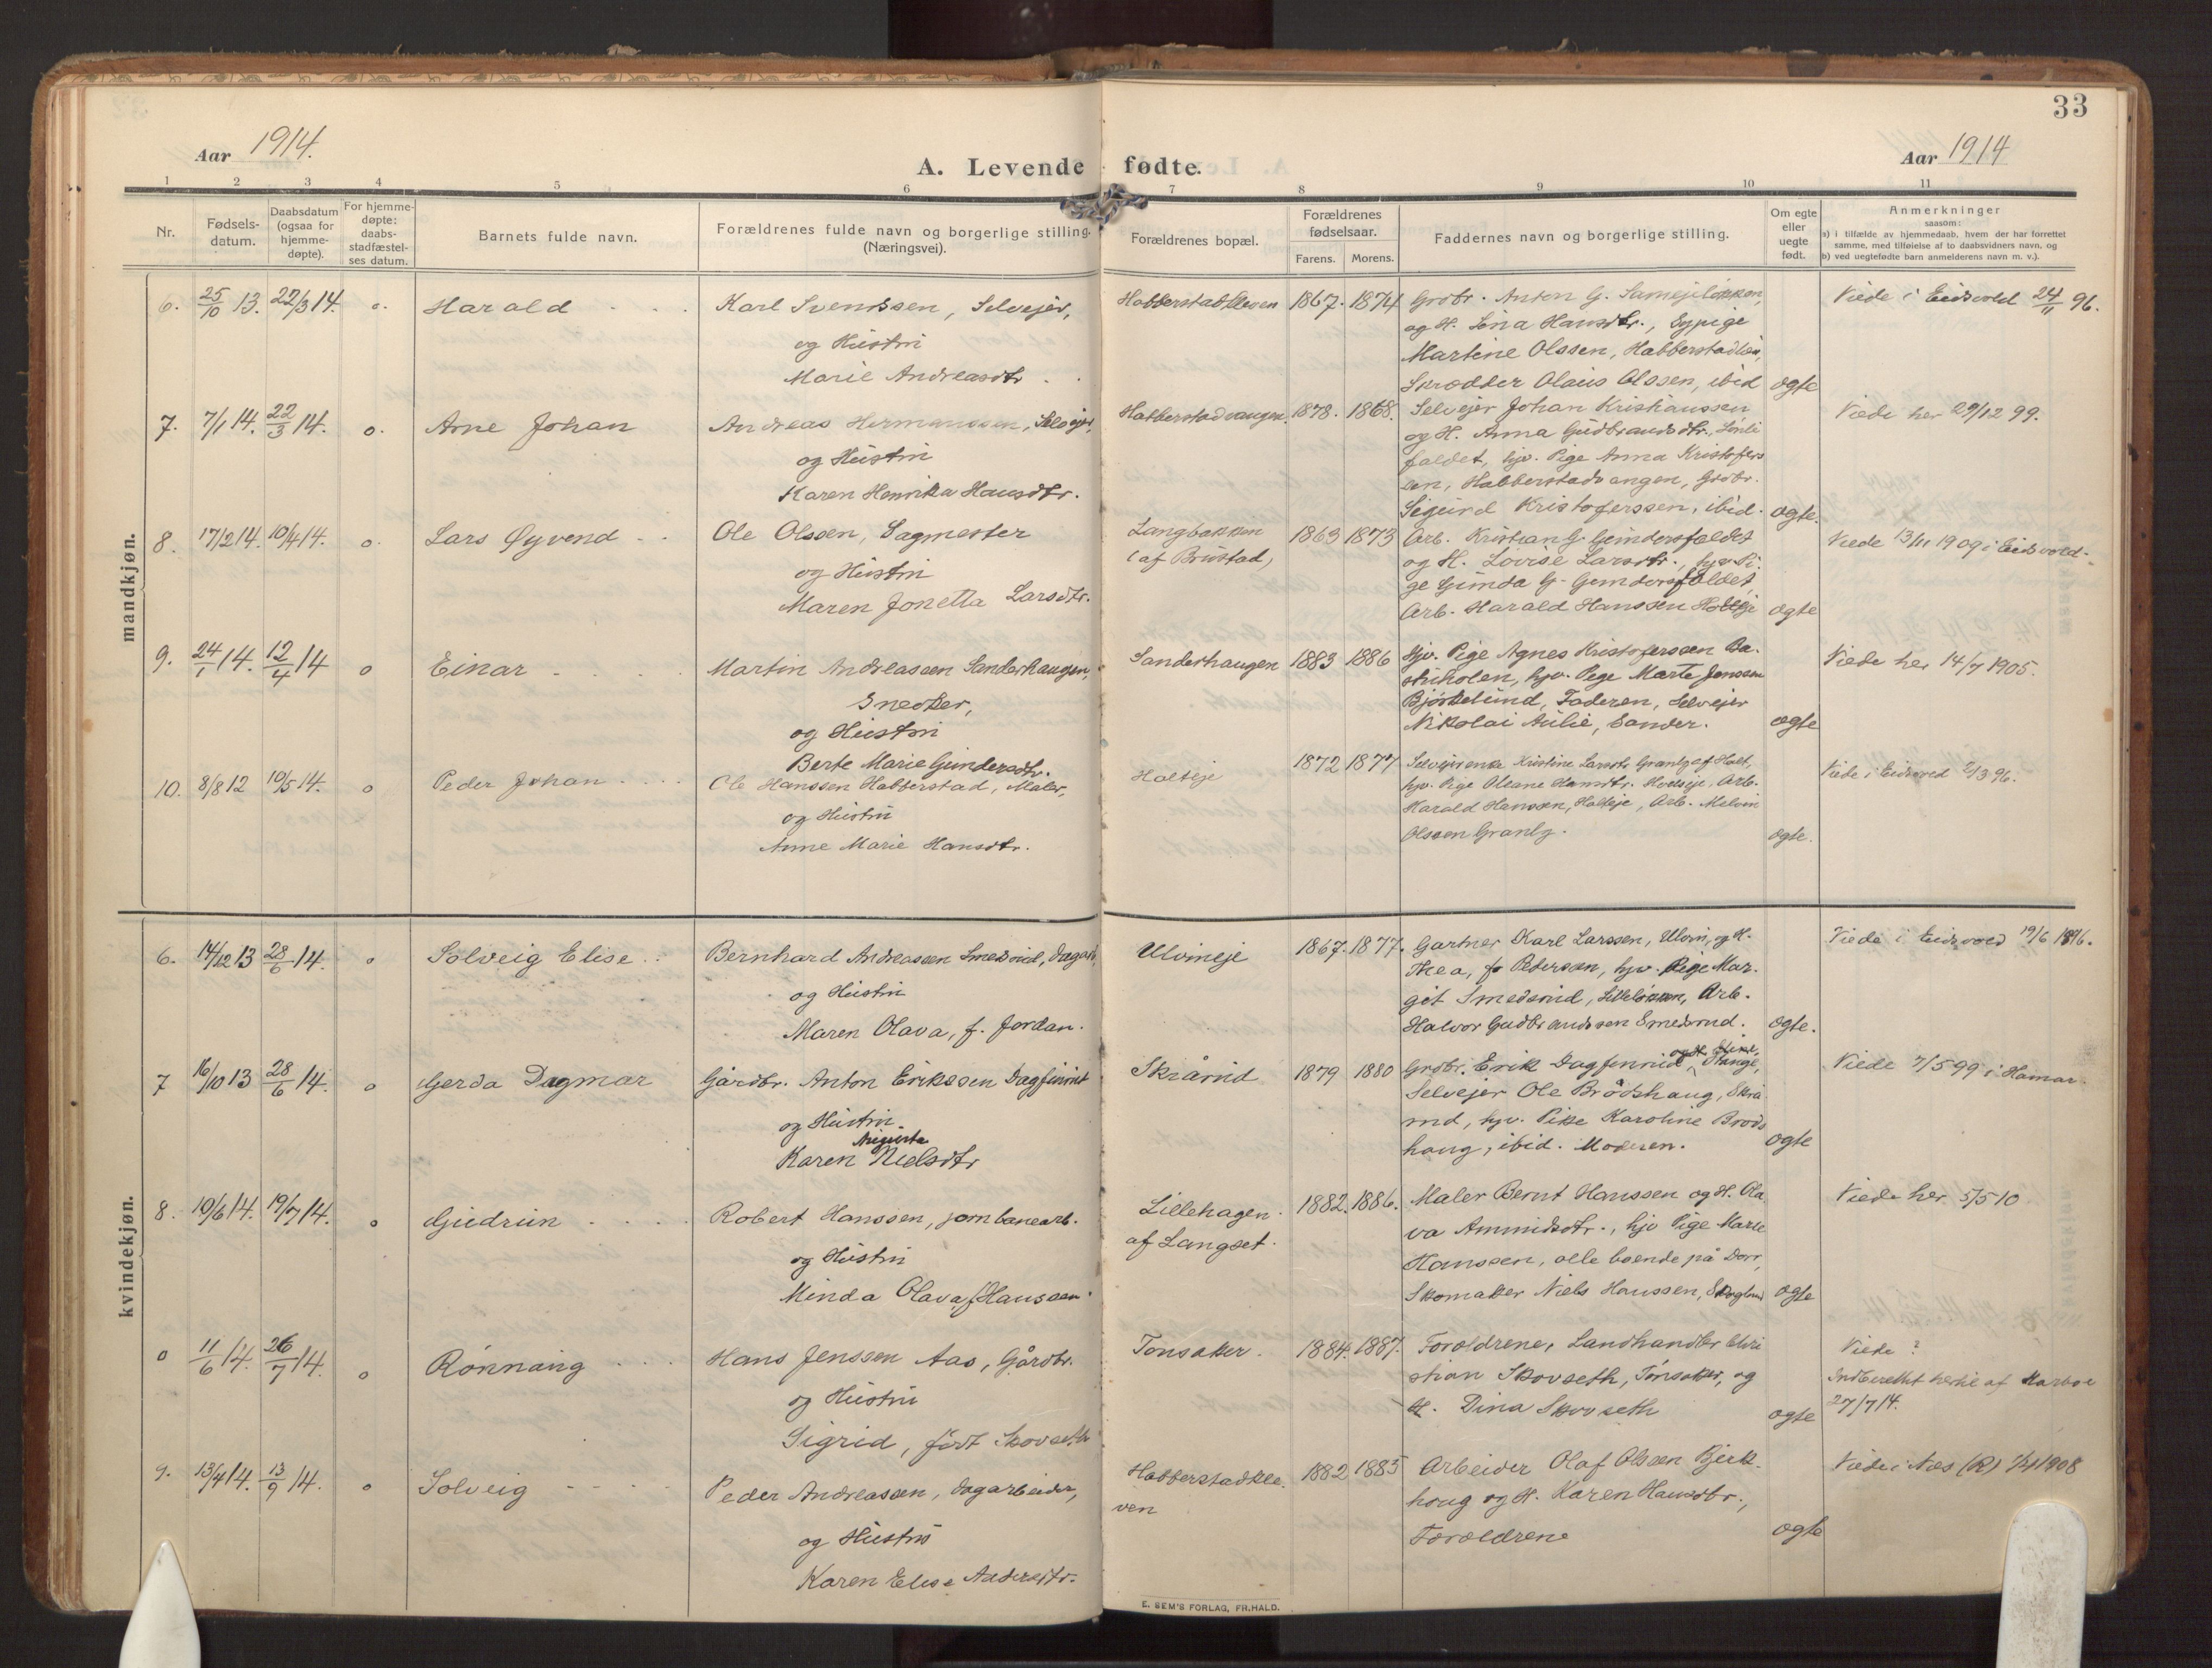 33
Aar 1914.
A. Levende fødte.
Aar 1914
1 2 3 4 5 6 7 8 9 10 11
Nr.
Fødsels-
datum.
Daabsdatum
(ogsaa for
hjemme-
døpte).
For hjemme-
døpte:
daabs-
stadfæstel-
ses datum.
Barnets fulde navn.
Forældrenes fulde navn og borgerlige stilling.
(Næringsvei).
Forældrenes bopæl.
Forældrenes
fødselsaar.
Farens. Morens.
Faddernes navn og borgerlige stilling.
Om egte
eller
uegte
født.
Anmerkninger
saasom:
a) i tilfælde av hjemmedaab, hvem der har forrettet
samme, med tilføielse af to daabsvidners navn, og
b) ved uegtefødte barn anmelderens navn m. v.).
mandkjøn.
6. 25/10 13. 22/3 14. o. Harald
Karl Svendssen, Selvejer,
og Hustru
Marie Andreasdtr.
Habberstadkleven 1867. 1874
Grdbr. Anton G.
og H. Lina Hansdtr.,
Martine Olssen,
Skrædder Olaus Olssen, ibid
ogte
Viede i Eidsvold 24/11 96.
7. 7/1 14. 22/3 14. o. Arne Johan
Andreas Hermanssen, Selvejer,
og Hustru
Karen Henrika Hansdtr.
Habberstadvangen. 1878. 1868.
Selvejer Johan Kristianssen
og H. Anna Gudbrandsdtr.,
faldet, hjv. Pige Anna Kristofers
sen, Habberstadvangen, Grdbr.
Sigurd Kristoferssen, ibid.
ogte.
Viede her 29/12 99.
8. 17/2 14. 10/4 14. o. Lars Øyvend
Ole Olssen, Sagmester
og Hustru
Maren Jonetta Larsdtr.
Langbakken
(af Brustad) 1863 1873
Arb. Kristian G. Gundersfaldet
og H. Lovise Larsdtr., hjv. Pi-
ge Gunda G. Gundersfaldet,
Arb. Harald Hanssen Holteje
ogte
Viede 13/11 1909 i Eidsvold.
9. 24/1 14. 12/4 14 o Einar
Martin Andreassen Sanderhaugen,
Snedker,
og Hustru
Berte Marie Gundersdtr.
Sanderhaugen 1883 1886
Hjv. Pige Agnes Kristoferssen Ba-
stuholen, hjv. Pige Marte Jenssen
Bjørkelund, Faderen, Selvejer
Nikolai Aulie, Sander.
ogte
Viede her 14/7 1905.
10. 8/8 12 10/5 14. o Peder Johan
Ole Hanssen Habberstad, Maler,
og Hustru
Anne Marie Hansdtr.
Holteje 1872 1877
Selvejerenke Kristine Larsdtr Granly af Holt,
hjv. Pige Oleane Hansdtr. Holteje, Arb.
Harald Hanssen, Holteje, Arb. Melvin
Olssen Granly.
ogte.
Viede i Eidsvold 2/3 96.
kvindekjøn.
6. 14/12 13 28/6 14. o Solveig Elise
Bernhard Andreassen Smedsrud, Dagarb.
og Hustru
Maren Olava, f. Jordan.
Ulvineje 1867. 1877.
Gartner Karl Larssen, Ulvin, og H.
Thea, f. Pedersen, hjv. Pige Mar-
git Smedsrud, Lilleløkken, Arb.
Halvor Gudbrandssen Smedsrud.
ogte.
Viede i Eidsvold 19/6 1896.
7 16/10 13 28/6 14. o Gerda Dagmar
Gårdbr. Anton Erikssen Dagfinrud
og Hustru
Augusta
Karen Nielsdtr
Skrårud 1879 1880
og H. Stine,
Grdbr. Erik Dagfinrud, Stange,
Selvejer Ole Brådshaug, Skrå
rud, hjv. Pike Karoline Brods
haug, ibid. Moderen.
ogte
Viede 7/5 99 i Hamar
8. 10/6 14. 19/7 14. o Gudrun
Robert Hanssen, jernbanearb.
og Hustru
Minda Olava, f Hanssen.
Lillehagen.
af Langset. 1882. 1886.
Maler Bernt Hanssen og H. Ola
va Amundsdtr., hjv Pige Marie
Hanssen, alle boende på Dorr,
Skomaker Niels Hanssen, Skoglund
ogte
Viede her 5/5 10
o 11/6 14. 26/7 14. o Rønnaug
Hans Jenssen Aas, Gårdbr.
og Hustru
Sigrid, født Skovseth
Tønsaker. 1884. 1887.
Foroldrene, Landhandler Chri
stian Skovseth, Tønsaker, og
H. Dina Skovseth
ogte
Viede ?
Indberettet hertil af
27/7 14.
9. 13/4 14. 13/9 14. o Solveig
Peder Andreassen, Dagarbeider,
og Hustru
Karen Elise
Habberstadkle-
ven 1882 1885
Arbeider Olaf Olssen Bjerk-
houg og H. Karen Hansdtr.,
Foroldrene
ogte
Viede i Nes (R) 1908
E. SEM'S FORLAG, FR.HALD.